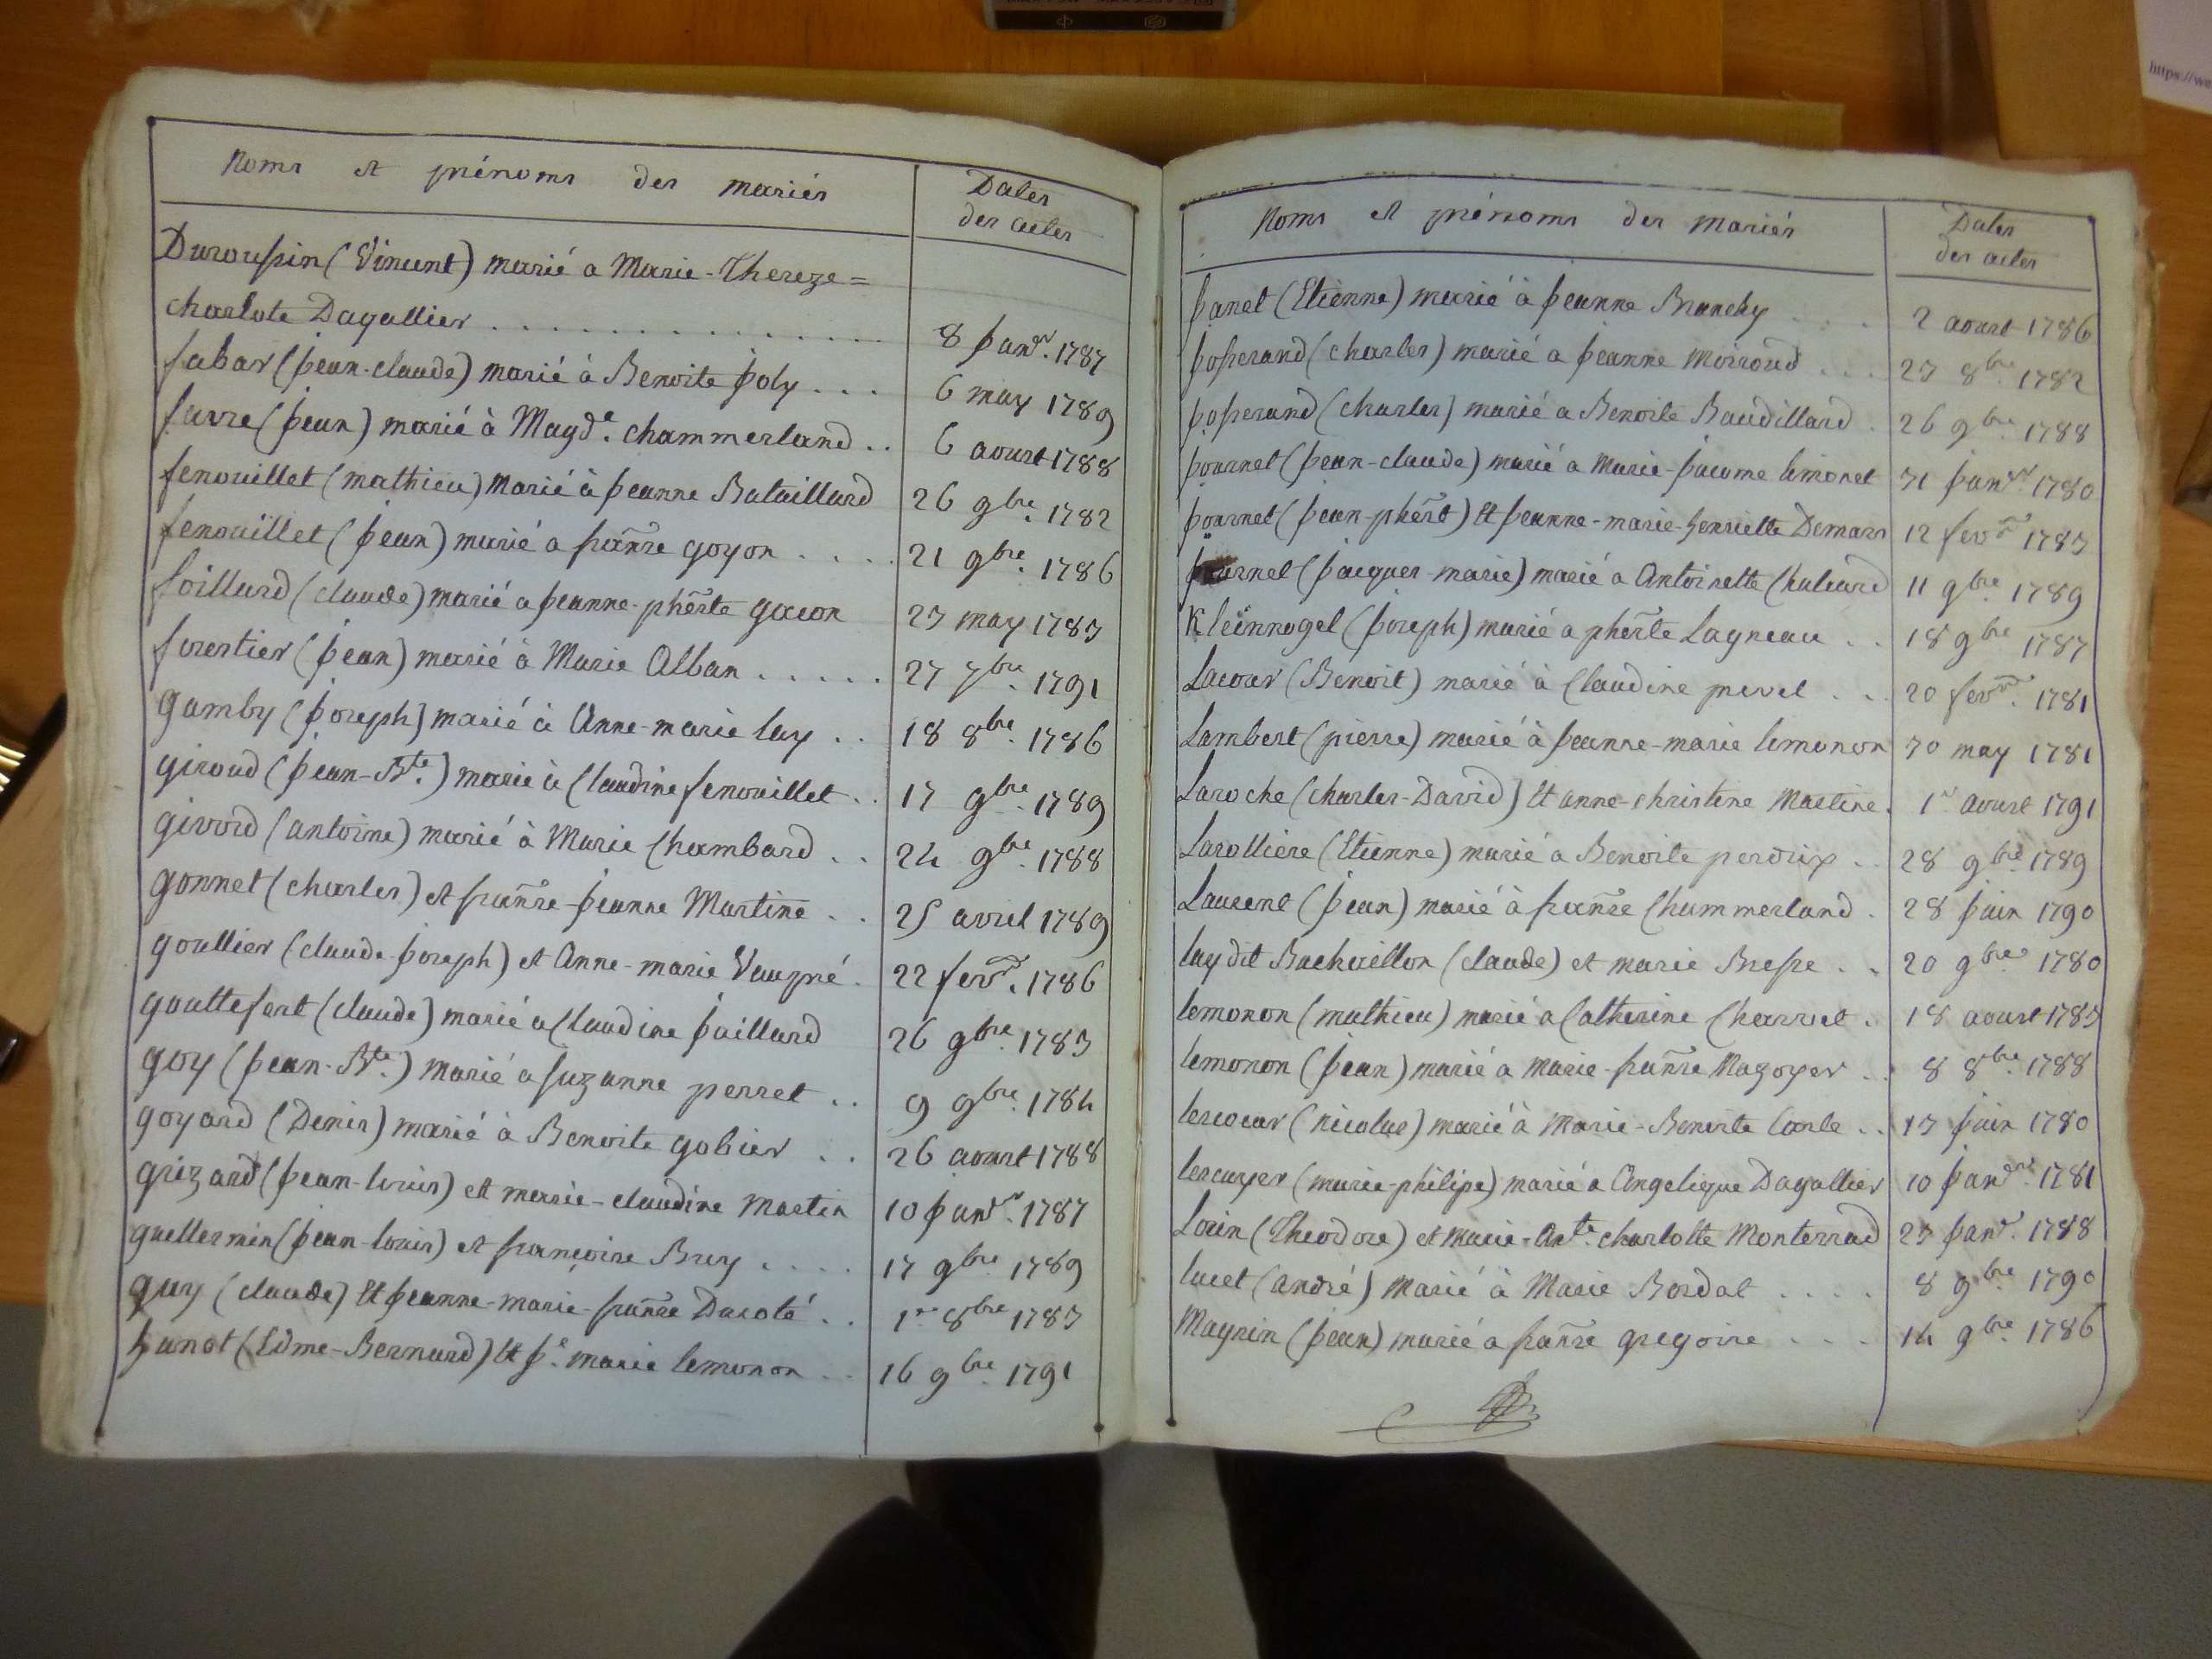 https://we
Noms et prénoms des mariés
Dates
des actes
Duroussin (Vincent) marié a Marie-Thereze=
charlote Dagallier . . . . . . . . . . . . . . . 8 janvr. 1787
fabar (jean-claude) marié à Benoite joly . . . 6 may 1789
favre (jean) marié à Magde. chammerland . . 6 aoust 1788
fenouillet (mathieu) marié à jeanne Bataillard 26 9bre. 1782
fenouillet (jean) marié a frañse goyon . . . . 21 9bre. 1786
foillard (claude) marié a jeanne-pherte gacon 23 may 1783
forestier (jean) marié à Marie Alban . . . . . 27 7bre. 1791
gamby (joseph) marié à Anne-marie lay . . 18 8bre. 1786
giroud (jean-Bte.) marié à Claudine fenouillet . . 17 9bre. 1789
givord (antoine) marié à Marie Chambard . . 24 9bre. 1788
gonnet (charles) et frañse-jeanne Martine . . 25 avril 1789
goullier (claude-joseph) et Anne-marie Vaupré . 22 fevr. 1786
gouttefert (claude) marié a Claudine jaillard 26 9bre. 1783
goy (jean-Bte.) marié a suzanne perret . . 9 9bre. 1784
goyard (Denis) marié à Benoite gobier . . 26 aoust 1788
grizard (jean-louis) et marie-claudine Martin 10 janvr. 1787
guillermin (jean-louis) et francoise Bruy . . . . 17 9bre. 1789
guy (claude) Et jeanne-marie-frañse Duroté . . 1er 8bre 1783
hanot (Edme-Bernard) Et je. marie lemonon . . 16 9bre. 1791
Noms et prénoms des mariés
Dates
des actes
janet (Etienne) marié à jeanne Branchy . . . . 2 aoust 1786
josserand (charles) marié a jeanne Moiroud . . . 23 8bre. 1782
josserand (charles) marié a Benoite Baudillard . 26 9bre. 1788
journet (jean-claude) marié a Marie-jacome limonet 31 janvr. 1780
journet (jean-phert) Et jeanne-marie-henriette Demars 12 fevr. 1783
journet (jacques-marie) marié a Antoinette Chaleard 11 9bre. 1789
Kleinnogel (joseph) marié a pherte Lagneau . . 18 9bre 1787
Lacour (Benoit) marié à Claudine pirvet . . 20 fevr. 1781
Lambert (pierre) marié à jeanne-marie lemonon 30 may 1781
Laroche (charles-David) Et anne-christine Martine . 1er aoust 1791
Larolliere (Etienne) marié a Benoite perdrix . . 28 9bre 1789
Laurent (jean) marié à frañse Chammerland . 28 juin 1790
lay dit Bachaillon (claude) et marie Bresse . . 20 9bre 1780
lemonon (mathieu) marié a Catherine Charvet . 18 aoust 1783
lemonon (jean) marié a Marie-frañse Mazoyer . . 8 8bre. 1788
lescoeur (nicolas) marié à Marie-Benoite Carle . . 13 juin 1780
lescuyer (marie-philipe) marié a Angelique Dagallier 10 janvr. 1781
Loin (Theodore) et Marie-Ante. charlotte Monterrad 23 janv. 1788
lucet (andré) Marié à Marie Bordat . . . . 8 9bre 1790
Magnin (jean) marié a frañse gregoire . . . . 14 9bre. 1786